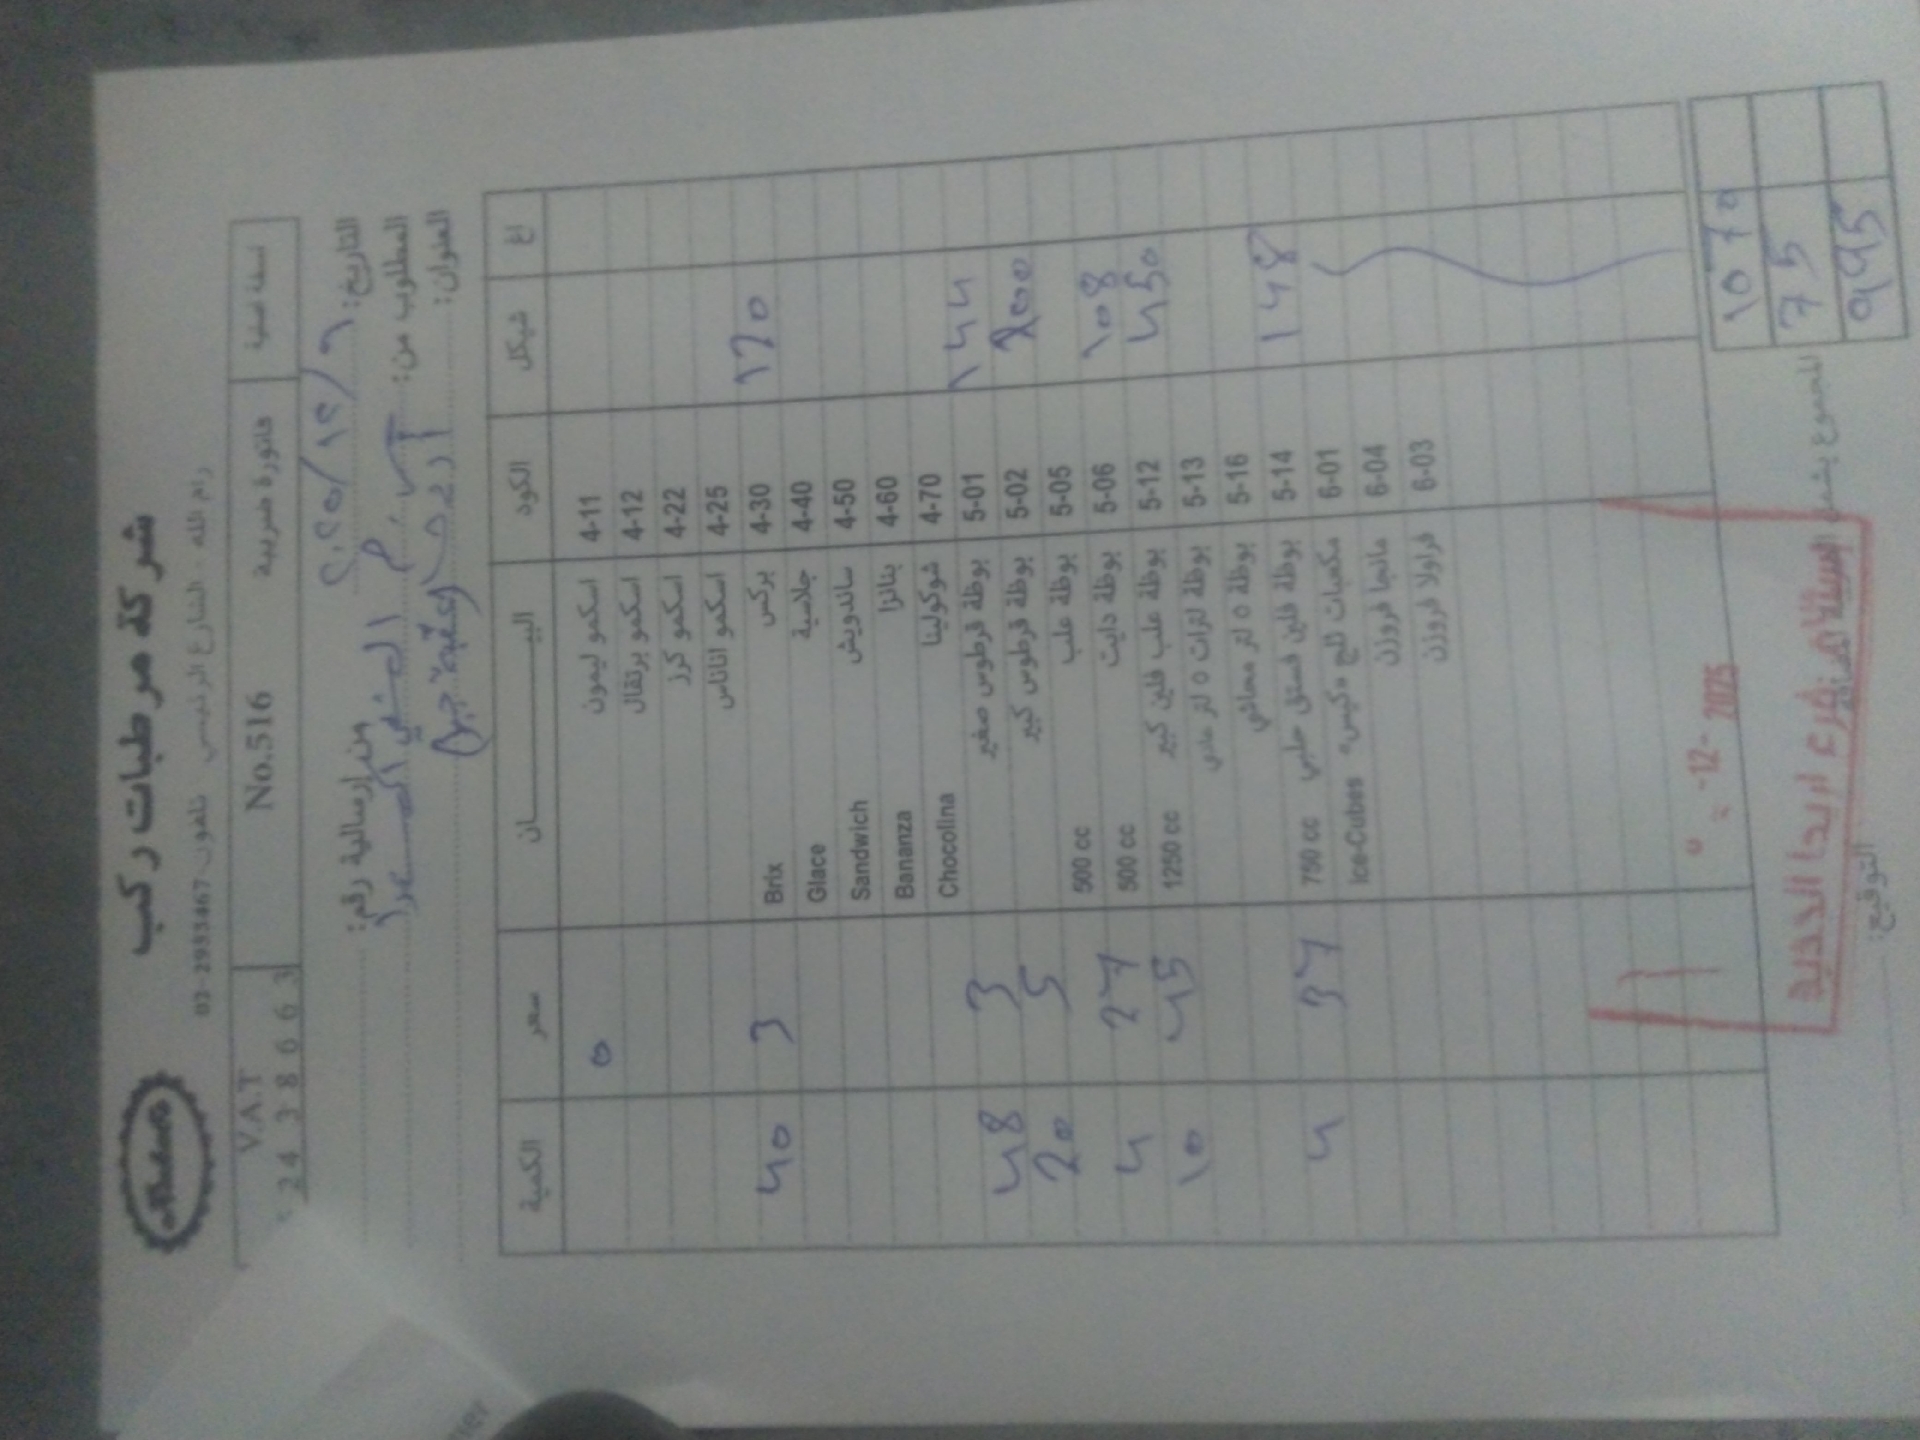 شركة مرطبات ركب
رام الله - الشارع الرئيسي تلفون: 2953467-02
نسخة اصلية فاتورة ضريبية No.516 V.A.T
24338663
التاريخ: ٢٠٢٥/١٢/٩ من ارسالية رقم:
المطلوب من:
العنوان: أريحا / عقبة جبر
اغ شيكل الكود البيـــــــــان سعر الكمية
4-11 اسكمو ليمون 0
4-12 اسكمو برتقال
4-22 اسكمو كرز
4-25 اسكمو اناناس
120 4-30 بركس Brix 3 40
4-40 جلاسية Glace
4-50 ساندويش Sandwich
4-60 بنانزا Bananza
4-70 شوكولينا Chocolina
144 5-01 بوظة قرطوس صغير 3 48
200 5-02 بوظة قرطوس كبير 5 20
5-05 بوظة علب 500 cc
108 5-06 بوظة دايت 500 cc 27 4
450 5-12 بوظة علب فلين كبير 1250 cc 45 10
5-13 بوظة لترات ٥ لتر عادي
5-16 بوظة ٥ لتر
148 5-14 بوظة فلين فستق حلبي 750 cc 37 4
6-01 مكعبات ثلج «كيس» Ice-Cubes
6-04 مانجا فروزن
6-03 فراولا فروزن
1070
75
995
-12- 2025
فرع اريحا الجديد
التوقيع: